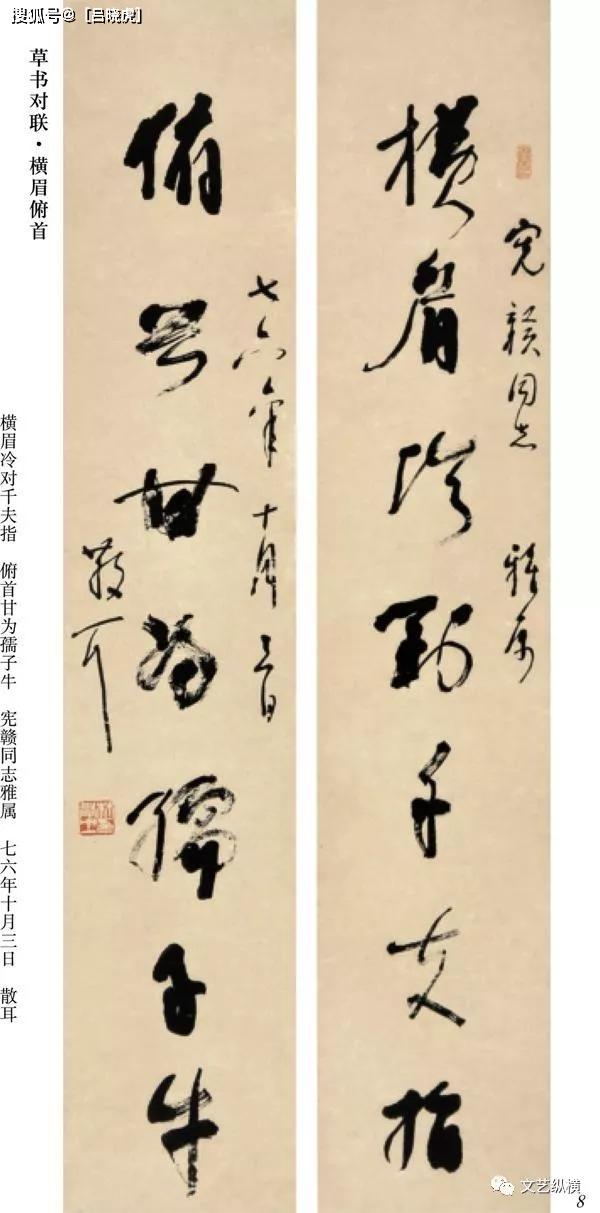 搜狐号@【吕晓虎】
草书对联·横眉俯首
横眉冷对千夫指 俯首甘为孺子牛 宪赣同志雅属 七六年十月三日 散耳
宪赣同志 雅属
横眉冷对千夫指
七六年十月三日
俯首甘为孺子牛
散耳
文艺纵横
8